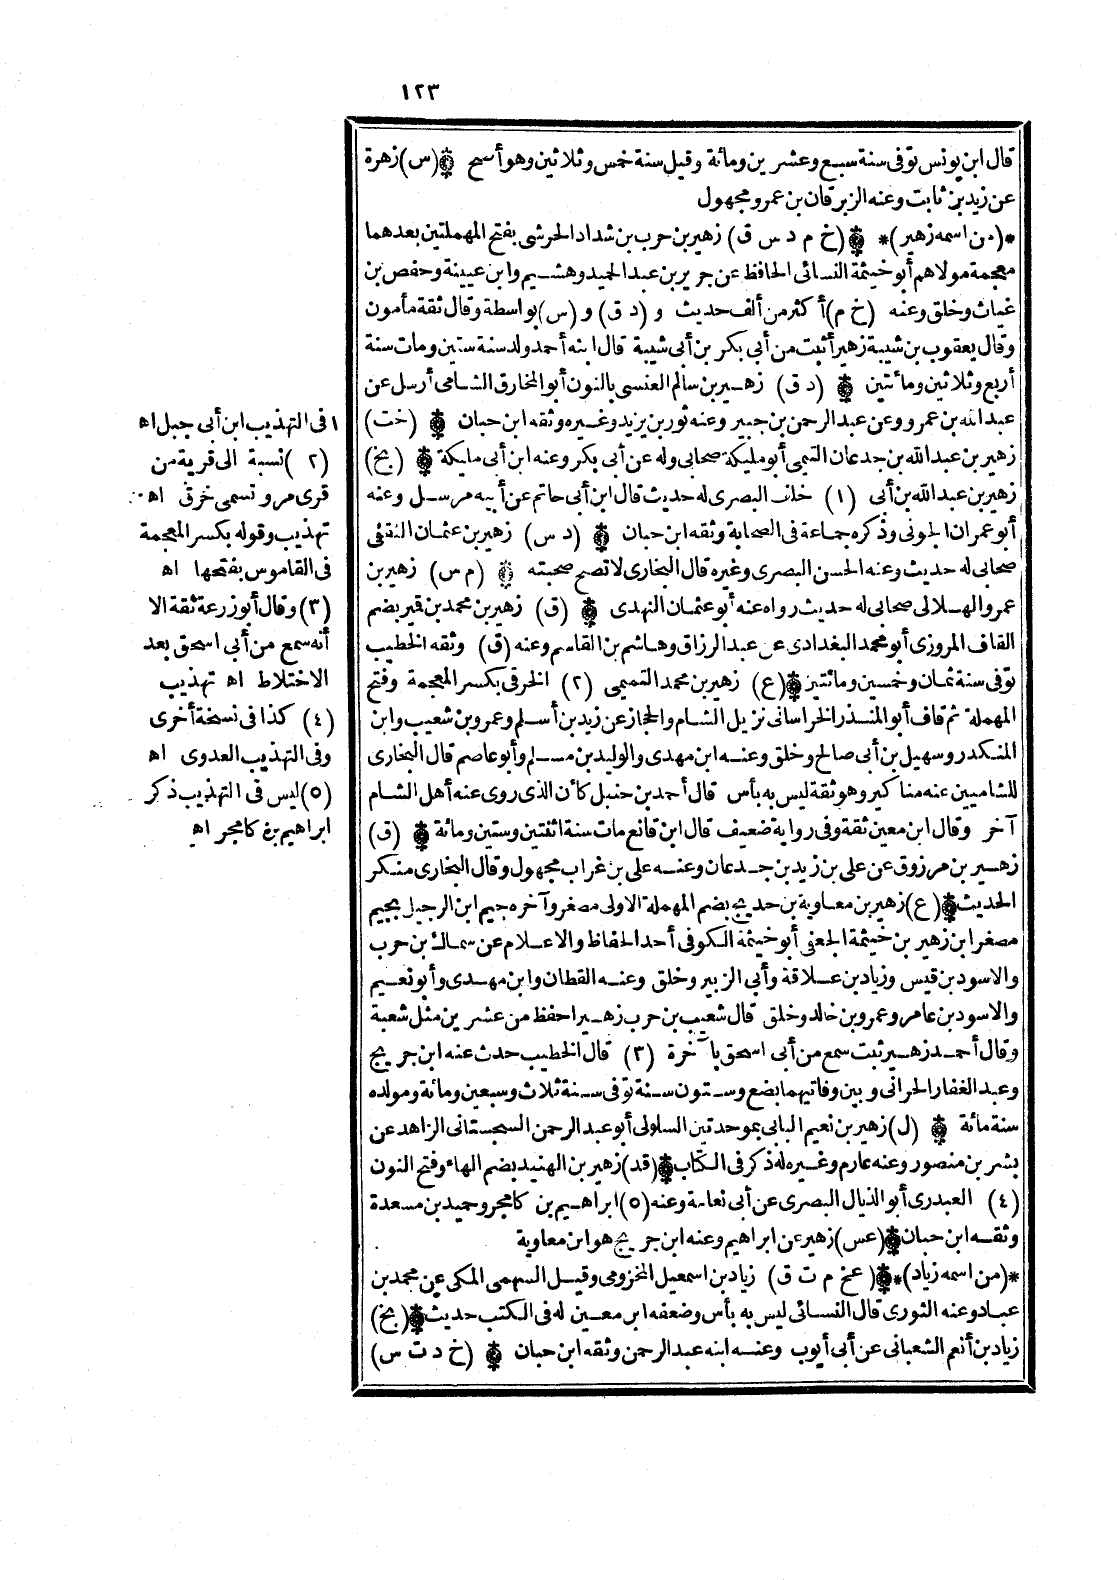 ١٢٣
قال ابن يونس توفى سنة سبع وعشرين ومائة وقيل سنة خمس وثلاثين وهو أصح (س) زهرة
عن زيد بن ثابت وعنه الزبرقان بن عمرو مجهول
*(من اسمه زهير)* (خ م د س ق) زهير بن حرب بن شداد الحرشى بفتح المهملتين بعدهما
معجمة مولاهم أبو خيثمة النسائى الحافظ عن جرير بن عبد الحميد وهشيم وابن عيينة وحفص بن
غياث وخلق وعنه (خ م) أكثر من ألف حديث و (د ق) و (س) بواسطة وقال ثقة مأمون
وقال يعقوب بن شيبة زهير أثبت من أبى بكر بن أبى شيبة قال ابنه أحمد ولد سنة ستين ومات سنة
أربع وثلاثين ومائتين (د ق) زهير بن سالم العنسى بالنون أبو المخارق الشامى أرسل عن
عبد الله بن عمرو وعن عبد الرحمن بن جبير وعنه ثور بن يزيد وغيره وثقه ابن حبان (خت)
زهير بن عبد الله بن جدعان التيمى أبو مليكة صحابى وله عن أبى بكر وعنه ابن أبى مليكة (بخ)
زهير بن عبد الله بن أبى (١) خلف البصرى له حديث قال ابن أبى حاتم عن أبيه مرسل وعنه
أبو عمران الجونى وذكره جماعة فى الصحابة وثقه ابن حبان (د س) زهير بن عثمان الثقفى
صحابى له حديث وعنه الحسن البصرى وغيره قال البخارى لا تصح صحبته (م س) زهير بن
عمرو الهلالى صحابى له حديث رواه عنه أبو عثمان النهدى (ق) زهير بن محمد بن قير بضم
القاف المروزى أبو محمد البغدادى عن عبد الرزاق وهاشم بن القاسم وعنه (ق) وثقه الخطيب
توفى سنة ثمان وخمسين ومائتين (ع) زهير بن محمد التميمى (٢) الخرقى بكسر المعجمة وفتح
المهملة ثم قاف أبو المنذر الخراسانى نزيل الشام والحجاز عن زيد بن أسلم وعمرو بن شعيب وابن
المنكدر وسهيل بن أبى صالح وخلق وعنه ابن مهدى والوليد بن مسلم وأبو عاصم قال البخارى
للشاميين عنه مناكير وهو ثقة ليس به بأس قال أحمد بن حنبل كأن الذى روى عنه أهل الشام
آخر وقال ابن معين ثقة وفى رواية ضعيف قال ابن قانع مات سنة اثنتين وستين ومائة (ق)
زهير بن مرزوق عن على بن زيد بن جدعان وعنه على بن غراب مجهول وقال البخارى منكر
الحديث (ع) زهير بن معاوية بن حديج بضم المهملة الاولى مصغر وآخره جيم ابن الرحيل بجيم
مصغر ابن زهير بن خيثمة الجعفى أبو خيثمة الكوفى أحد الحفاظ والاعلام عن سماك بن حرب
والاسود بن قيس وزياد بن علاقة وأبى الزبير وخلق وعنه القطان وابن مهدى وأبو نعيم
والاسود بن عامر وعمرو بن خالد وخلق قال شعيب بن حرب زهير احفظ من عشرين مثل شعبة
وقال أحمد زهير ثبت سمع من أبى اسحق بآخرة (٣) قال الخطيب حدث عنه ابن جريج
وعبد الغفار الحرانى وبين وفاتيهما بضع وستون سنة توفى سنة ثلاث وسبعين ومائة ومولده
سنة مائة (ل) زهير بن نعيم البابى بموحدتين السلولى أبو عبد الرحمن السجستانى الزاهد عن
بشر بن منصور وعنه عارم وغيره له ذكر فى الكتاب (قد) زهير بن الهنيد بضم الهاء وفتح النون
(٤) العبدرى أبو الذيال البصرى عن أبى نعامة وعنه (٥) ابراهيم بن كامجر وحميد بن مسعدة
وثقه ابن حبان (عس) زهير عن ابراهيم وعنه ابن جريج هو ابن معاوية
*(من اسمه زياد)* (عخ م ت ق) زياد بن اسمعيل المخزومى وقيل السهمى المكى عن محمد بن
عباد وعنه الثورى قال النسائى ليس به بأس وضعفه ابن معين له فى الكتب حديث (بخ)
زياد بن أنعم الشعبانى عن أبى أيوب وعنه ابنه عبد الرحمن وثقه ابن حبان (خ د ت س)
١ فى التهذيب ابن أبى جبل اه
(٢) نسبة الى قرية من
قرى مرو تسمى خرق اه
تهذيب وقوله بكسر المعجمة
فى القاموس بفتحها اه
(٣) وقال أبو زرعة ثقة الا
أنه سمع من أبى اسحق بعد
الاختلاط اه تهذيب
(٤) كذا فى نسخة أخرى
وفى التهذيب العدوى اه
(٥) ليس فى التهذيب ذكر
ابراهيم بن كامجر اه